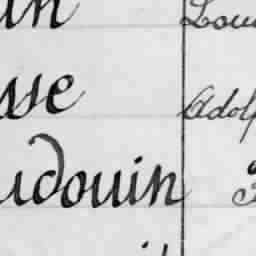 in Lou
sse Adolp
udouin